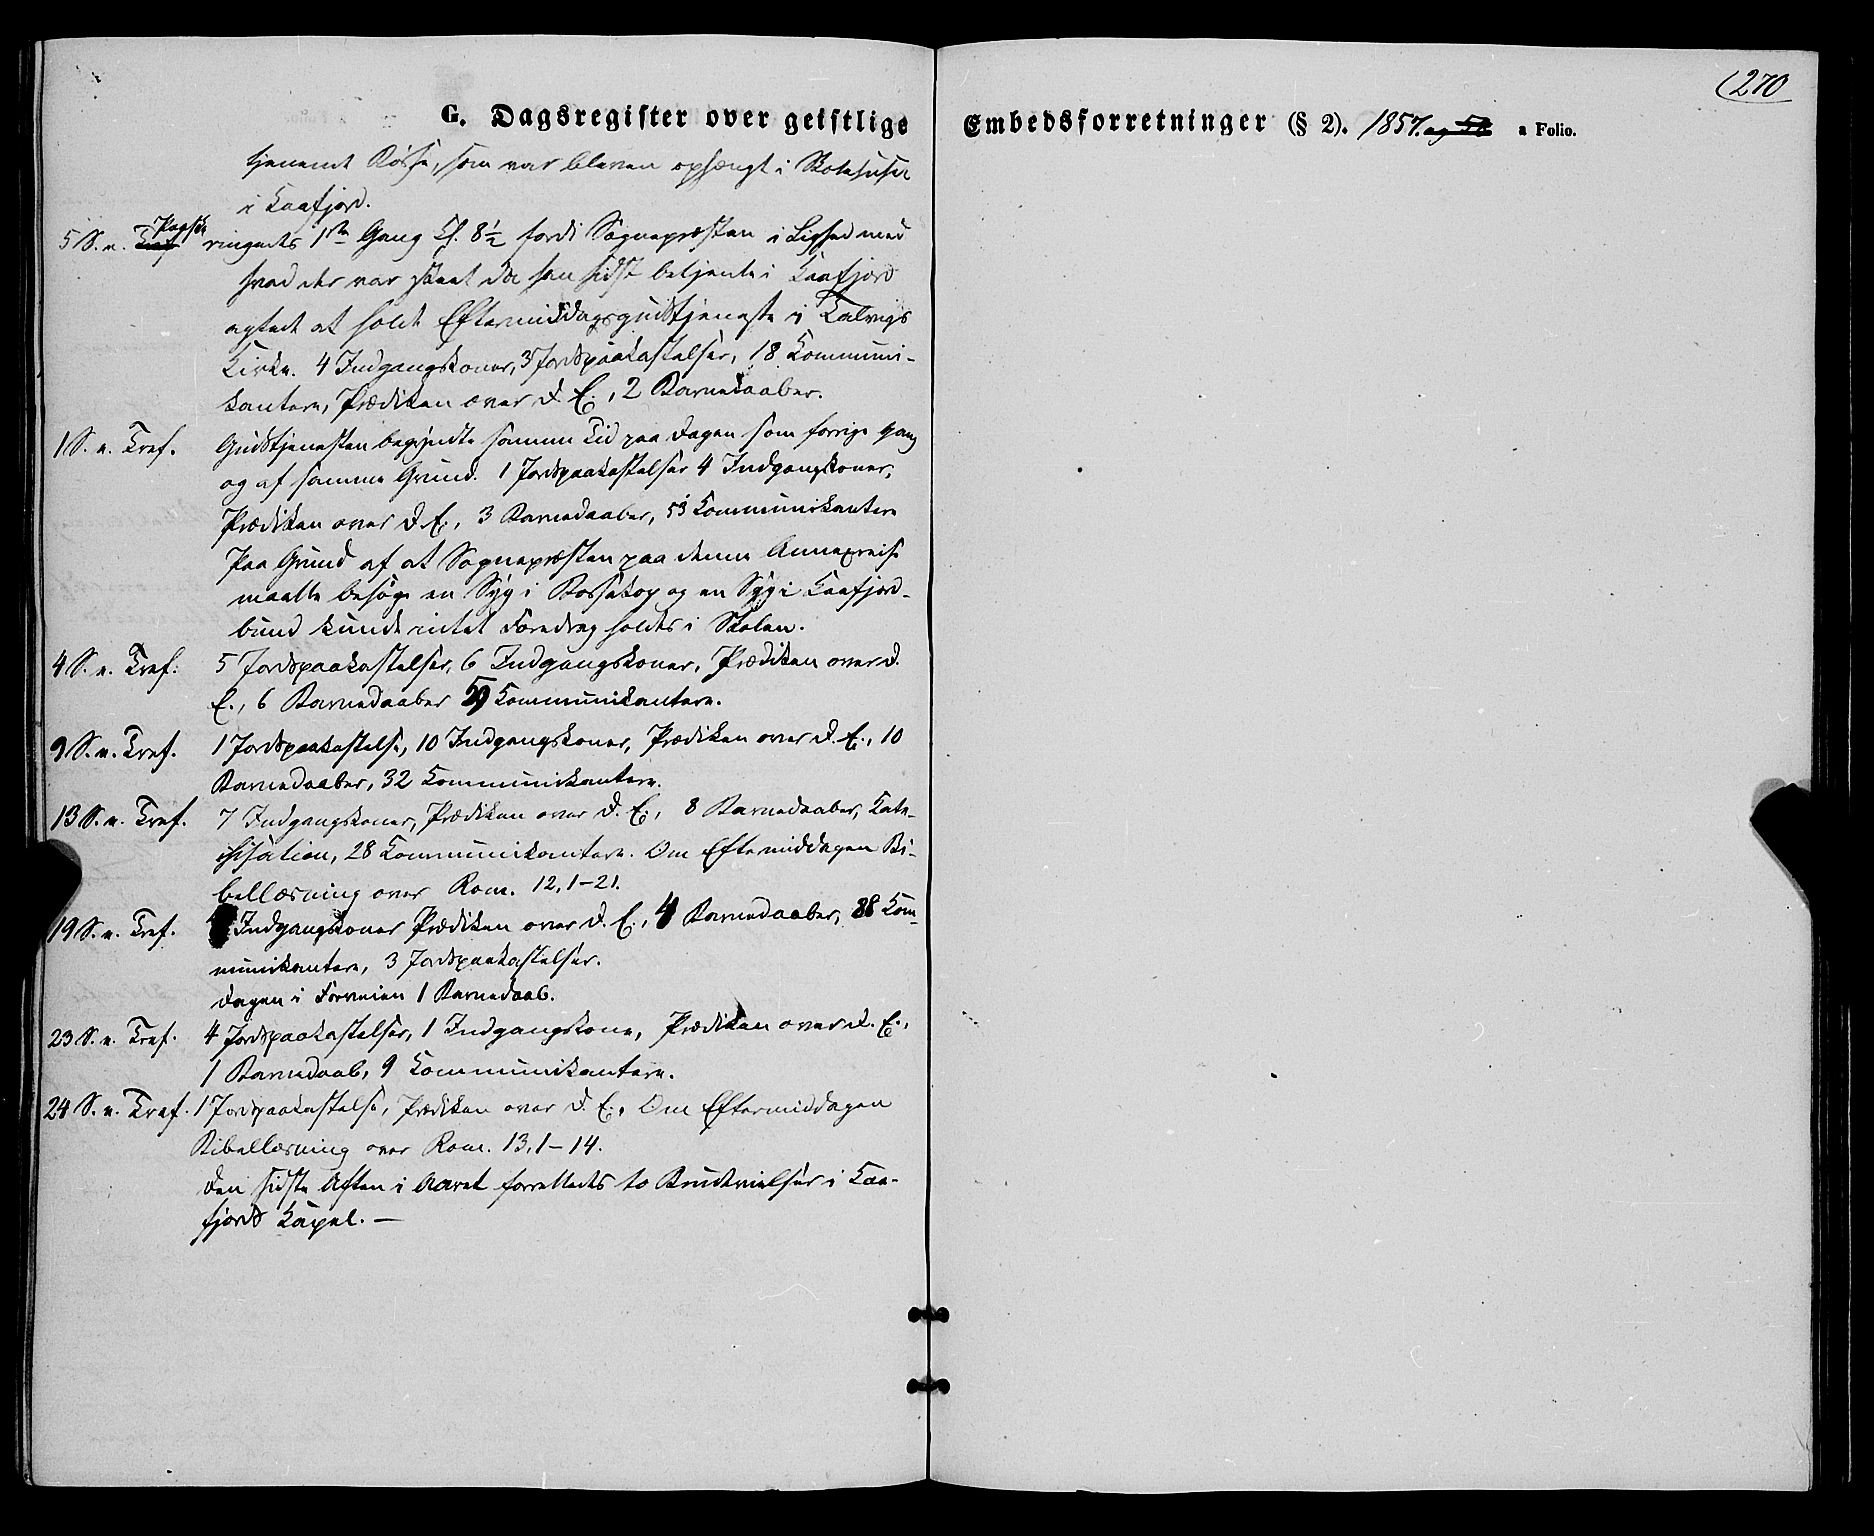 270
G. Dagsregister over geistlige Embedsforretninger (§ 2). 1857. og 58 a Folio.
tjenemt Bøsse, som var bleven ophængt i Skolehuset
i Kaafjord.
5 S. e. Paaske ringedes 1ste Gang Kl. 8½ fordi Sognepræsten i Lighed med
hvad der var skeet da han sidst betjente i Kaafjord
agtede at holde Eftermiddagsgudstjeneste i Talvigs
Kirke. 4 Indgangskoner, 3 Jordspaakastelser, 18 Kommuni-
kantere, Prædiken over d. E., 2 Barnedaaber.
1 S. e. Tref. Gudstjenesten begyndte samme Tid paa Dagen som forrige Gang
og af samme Grund. 1 Jordspaakastelser 4 Indgangskoner,
Prædiken over d. E., 3 Barnedaaber, 53 Kommunikantere
Paa Grund af at Sognepræsten paa denne Annexreise
maatte besøge en Syg i Bossekop og en Syg i Kaafjord-
bund kunde intet Foredrag holdes i Skolen.
4 S. e. Tref. 5 Jordspaakastelser, 6 Indgangskoner, Prædiken over d.
E., 6 Barnedaaber 59 Kommunikantere.
9 S. e. Tref. 1 Jordspaakastelse, 10 Indgangskoner, Prædiken over d. E., 10
Barnedaaber, 32 Kommunikantere.
13 S. e. Tref. 7 Indgangskoner, Prædiken over d. E., 8 Barnedaaber, Kate-
chisation, 28 Kommunikantere. Om Eftermiddagen Bi-
bellæsning over Rom. 12, 1-21.
19 S. e. Tref. Indgangskoner Prædiken over d. E., 4 Barnedaaber, 88 Kom-
munikantere, 3 Jordspaakastelser.
Dagen i Forveien 1 Barnedaab.
23 S. e. Tref. 4 Jordspaakastelser, 1 Indgangskone, Prædiken over d. E.,
1 Barnedaab, 9 Kommunikantere.
24 S. e. Tref. 1 Jordspaakastelse, Prædiken over d. E., Om Eftermiddagen
Bibellæsning over Rom. 13, 1-14.
Den sidste Aften i Aaret forrettedes to Brudevielser i Kaa-
fjords Kapel. —